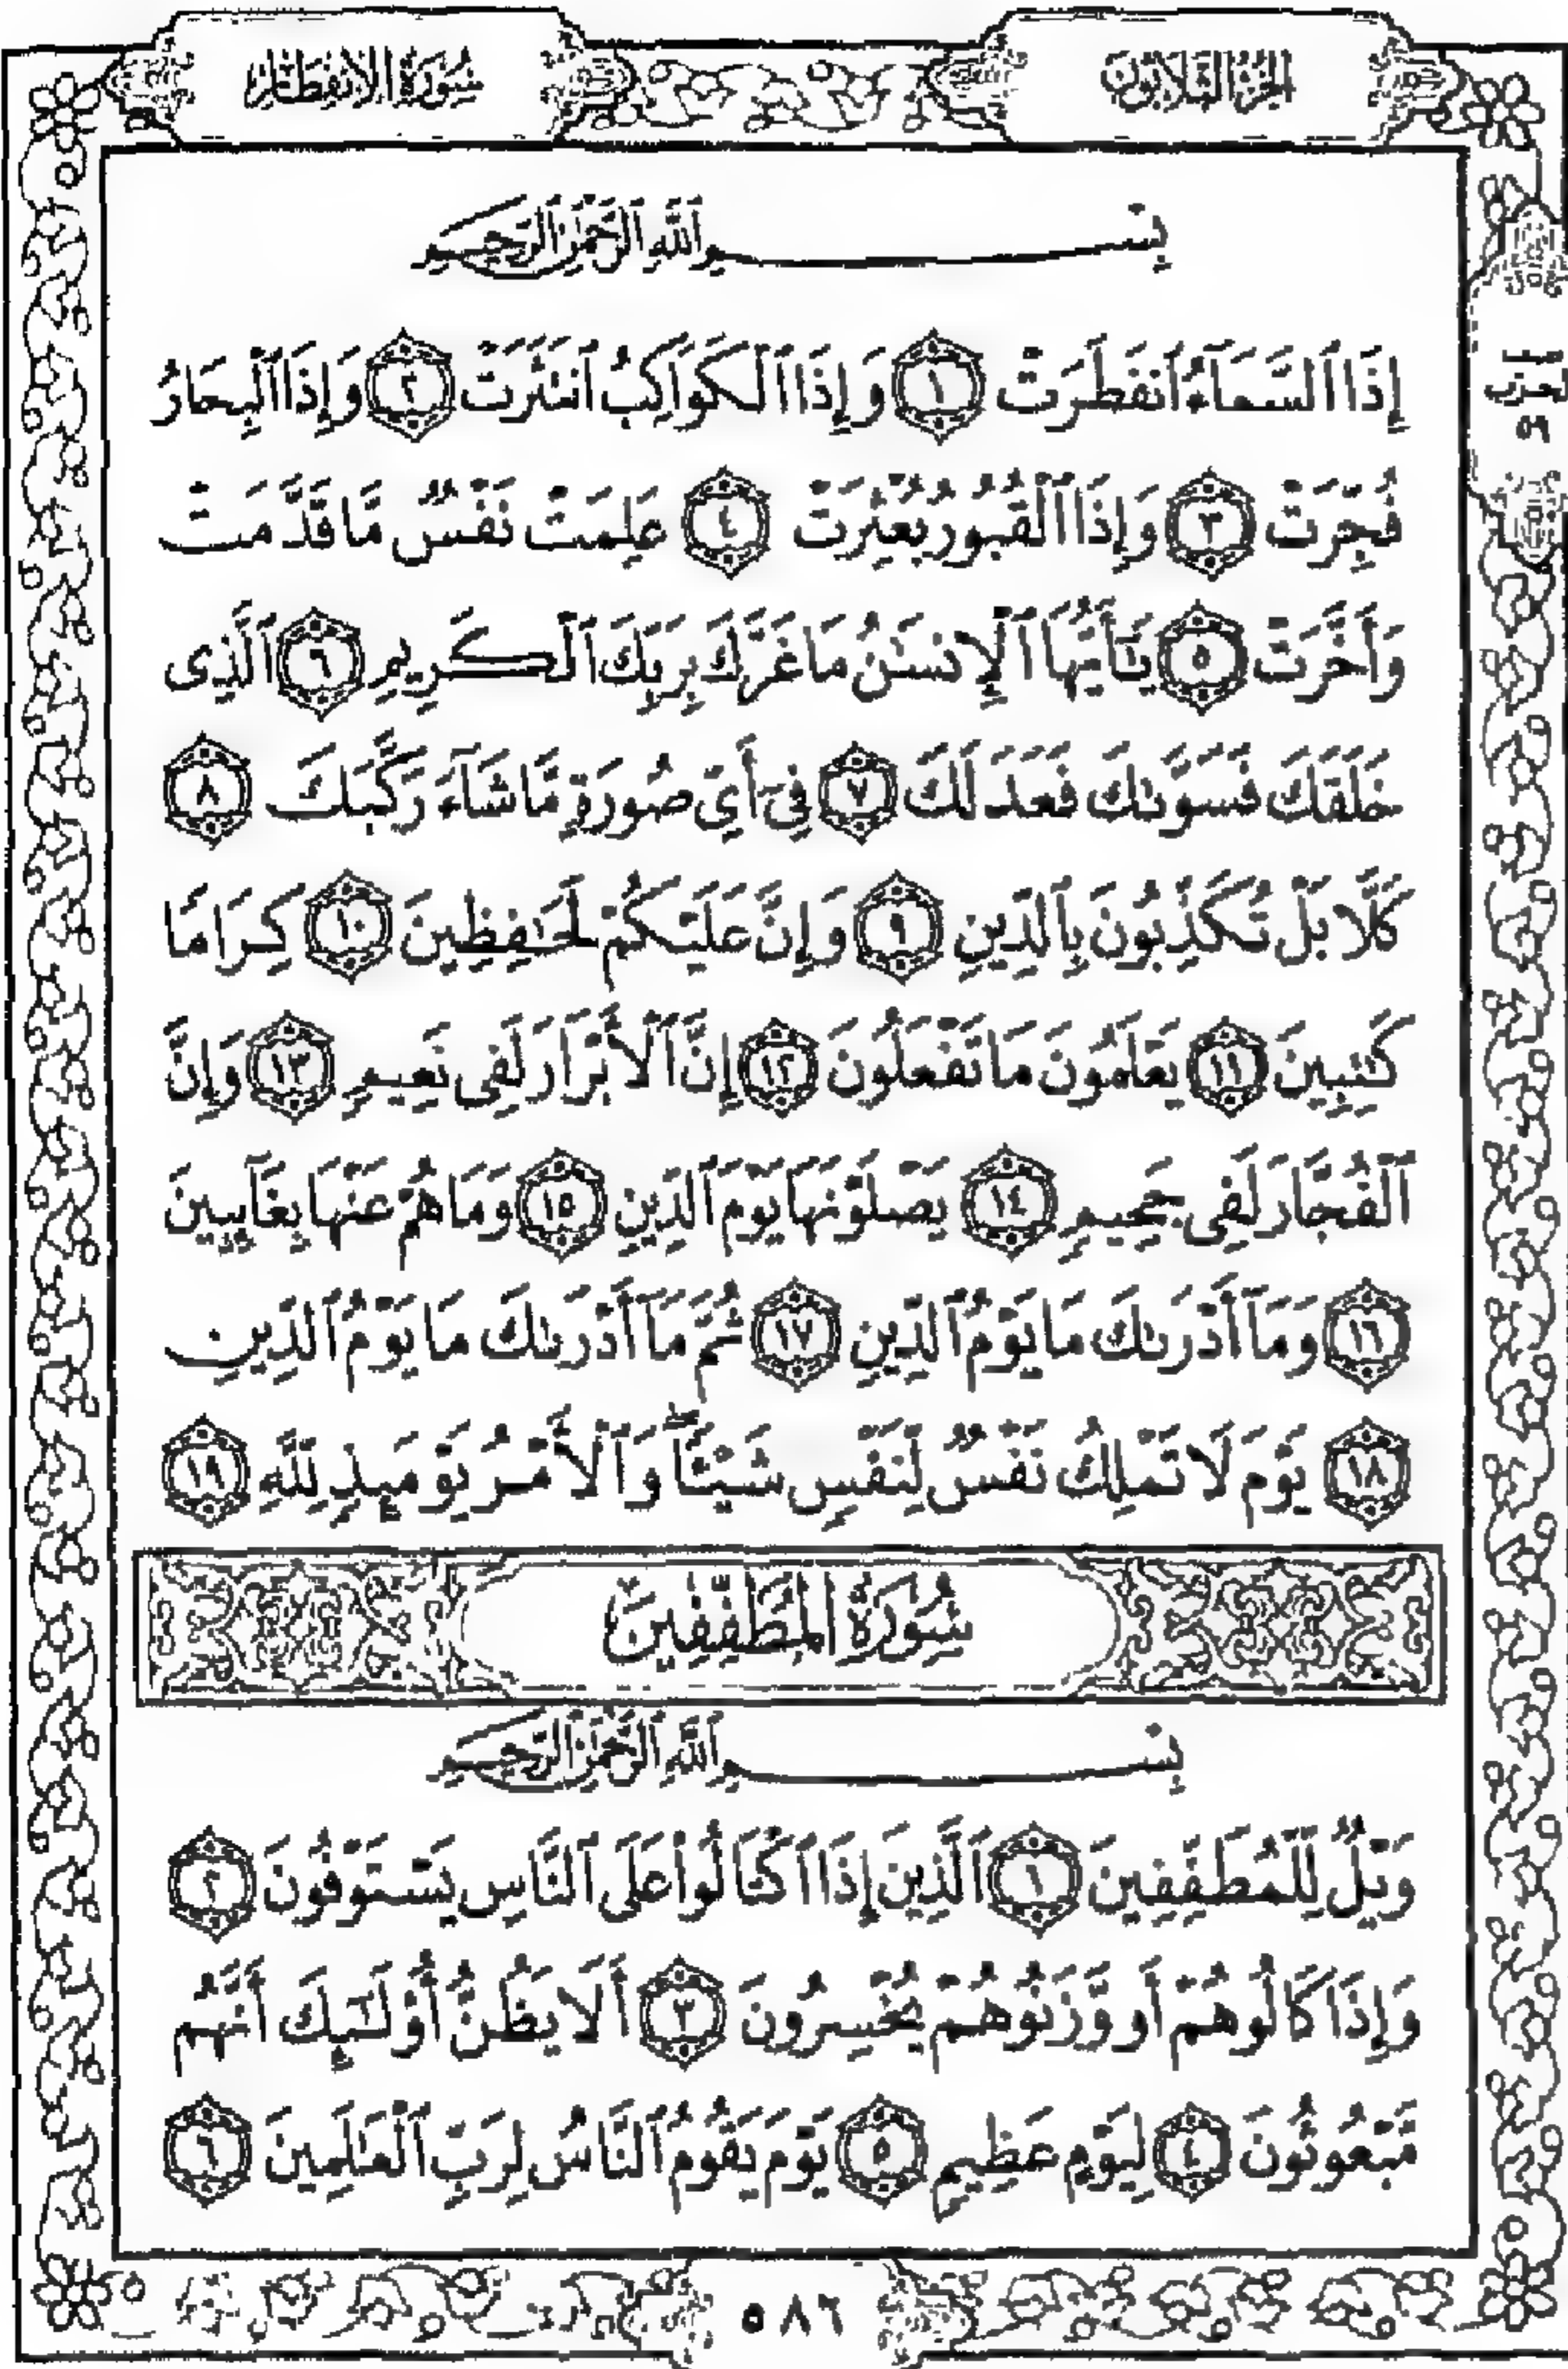 الجزء الثلاثون
سورة الانفطار
بِسْمِ ٱللَّهِ ٱلرَّحْمَٰنِ ٱلرَّحِيمِ
إِذَا ٱلسَّمَآءُ ٱنفَطَرَتْ ١ وَإِذَا ٱلْكَوَاكِبُ ٱنتَثَرَتْ ٢ وَإِذَا ٱلْبِحَارُ
فُجِّرَتْ ٣ وَإِذَا ٱلْقُبُورُ بُعْثِرَتْ ٤ عَلِمَتْ نَفْسٌ مَّا قَدَّمَتْ
وَأَخَّرَتْ ٥ يَٰٓأَيُّهَا ٱلْإِنسَٰنُ مَا غَرَّكَ بِرَبِّكَ ٱلْكَرِيمِ ٦ ٱلَّذِى
خَلَقَكَ فَسَوَّىٰكَ فَعَدَلَكَ ٧ فِىٓ أَىِّ صُورَةٍ مَّا شَآءَ رَكَّبَكَ ٨
كَلَّا بَلْ تُكَذِّبُونَ بِٱلدِّينِ ٩ وَإِنَّ عَلَيْكُمْ لَحَٰفِظِينَ ١٠ كِرَامًا
كَٰتِبِينَ ١١ يَعْلَمُونَ مَا تَفْعَلُونَ ١٢ إِنَّ ٱلْأَبْرَارَ لَفِى نَعِيمٍ ١٣ وَإِنَّ
ٱلْفُجَّارَ لَفِى جَحِيمٍ ١٤ يَصْلَوْنَهَا يَوْمَ ٱلدِّينِ ١٥ وَمَا هُمْ عَنْهَا بِغَآئِبِينَ
١٦ وَمَآ أَدْرَىٰكَ مَا يَوْمُ ٱلدِّينِ ١٧ ثُمَّ مَآ أَدْرَىٰكَ مَا يَوْمُ ٱلدِّينِ
١٨ يَوْمَ لَا تَمْلِكُ نَفْسٌ لِّنَفْسٍ شَيْـًٔا ۖ وَٱلْأَمْرُ يَوْمَئِذٍ لِّلَّهِ ١٩
سُورَةُ المُطَفِّفِينَ
بِسْمِ ٱللَّهِ ٱلرَّحْمَٰنِ ٱلرَّحِيمِ
وَيْلٌ لِّلْمُطَفِّفِينَ ١ ٱلَّذِينَ إِذَا ٱكْتَالُوا۟ عَلَى ٱلنَّاسِ يَسْتَوْفُونَ ٢
وَإِذَا كَالُوهُمْ أَو وَّزَنُوهُمْ يُخْسِرُونَ ٣ أَلَا يَظُنُّ أُو۟لَٰٓئِكَ أَنَّهُم
مَّبْعُوثُونَ ٤ لِيَوْمٍ عَظِيمٍ ٥ يَوْمَ يَقُومُ ٱلنَّاسُ لِرَبِّ ٱلْعَٰلَمِينَ ٦
الحزب
٥٩
٥٨٦